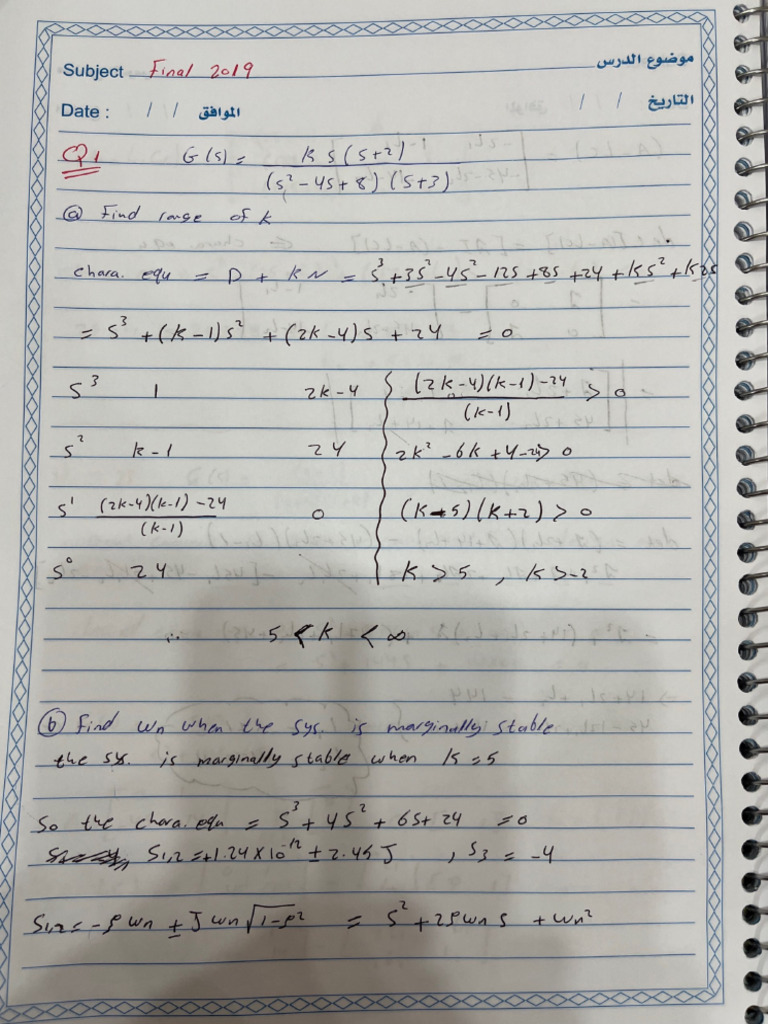 موضوع الدرس
Subject Final 2019
التاريخ / /
Date : / / الموافق
Q1 G(s) = K s (s+2) / (s² - 4s + 8) (s+3)
ⓐ Find range of K
chara. equ = D + KN = s³ + 3s² - 4s² - 12s + 8s + 24 + Ks² + K2s
= s³ + (K-1)s² + (2K-4)s + 24 = 0
s³ 1 2K-4
s² K-1 24
s¹ (2K-4)(K-1) - 24 / (K-1) 0
s⁰ 24
(2K-4)(K-1) - 24 / (K-1) > 0
2K² - 6K + 4 - 24 > 0
(K-5)(K+2) > 0
K > 5 , K > -2
∴ 5 < K < ∞
ⓑ Find wn when the sys. is marginally stable
the sys. is marginally stable when K = 5
So the chara. equ = s³ + 4s² + 6s + 24 = 0
S1,2 = +1.24 × 10⁻¹² ± 2.45 J , S3 = -4
S1,2 = -ρ wn ± J wn √1-ρ² = s² + 2ρ wn s + wn²